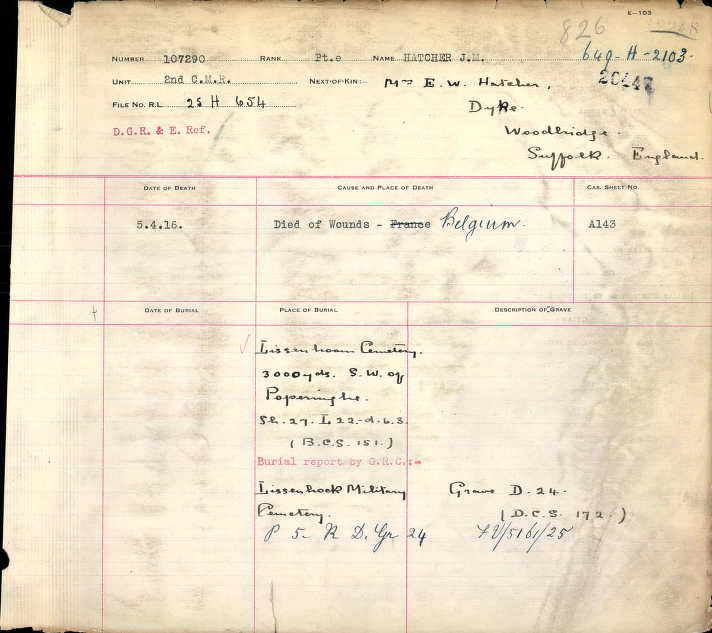 E-103
826
649-H-2103.
NUMBER 107290 RANK Pt.e NAME HATCHER J.M.
20447
UNIT 2nd C.M.R. NEXT-OF-KIN:- Mrs E. W. Hatcher,
FILE NO. R.L. 25 H 654 Dyke.
D.G.R. & E. Ref. Woodbridge.
Suffolk. England.
DATE OF DEATH CAUSE AND PLACE OF DEATH CAS. SHEET NO.
5.4.16. Died of Wounds - France Belgium. A143
DATE OF BURIAL PLACE OF BURIAL DESCRIPTION OF GRAVE
Lissenhoern Cemetery.
3000yds. S.W. of
Poperinghe.
Sh. 27. L 22.d.6.3.
(B.C.S. 151.)
Burial report by G.R.C.:-
Lissenhoek Military Grave D. 24.
Cemetery. (D.C.S. 172.)
P 5 - R D. Gr 24